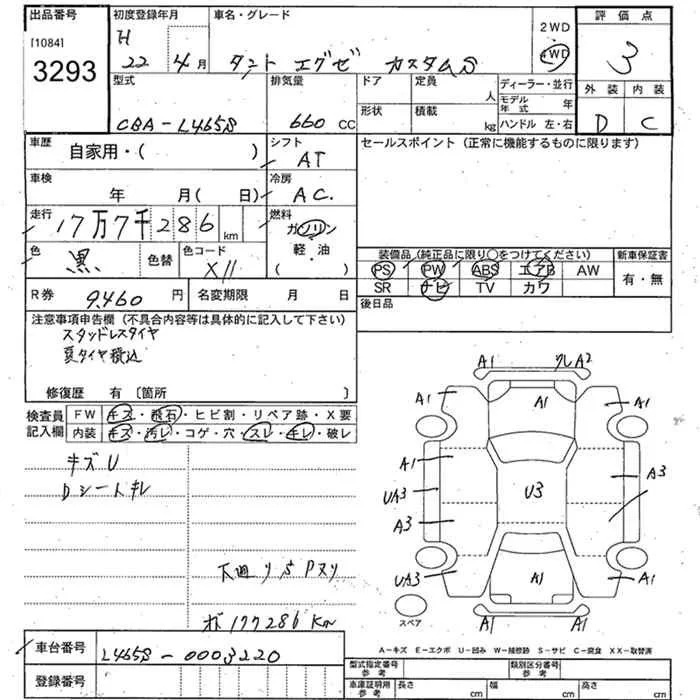 出品番号 初度登録年月 車名・グレード 評価点
[1084] H 2WD
3293 22年 4月 タント エグゼ カスタムS 4WD 3
型式 排気量 ドア 定員 人 ディーラー・並行 外装 内装
形状 積載 kg モデル年式 年
CBA-L465S 660 cc ハンドル 左・右 D C
車歴 自家用・( ) シフト AT セールスポイント (正常に機能するものに限ります)
車検 年 月( 日) 冷房 AC.
走行 17万7千286 km 燃料 ガソリン
軽・油
( )
色 黒 色替 色コード X11
装備品 (純正品に限り○をつけてください) 新車保証書
PS PW ABS エアB AW 有・無
SR ナビ TV カワ
R券 9,460円 名変期限 月 日 後日品
注意事項申告欄 (不具合内容等は具体的に記入して下さい)
スタッドレスタイヤ
夏タイヤ積込
修復歴 有 〔箇所 〕
検査員記入欄 FW キズ・飛石・ヒビ割・リペア跡・X要
内装 キズ・汚レ・コゲ・穴・スレ・キレ・破レ
キズU
Dシートキレ
下廻りS Pヌリ
ボ177286Km
A1 クレA2
A1 A1 A1
A1 A3
UA3 U3
A3
UA3 A1 A1
A1 A1
スペア
A-キズ E-エクボ U-凹み W-補修跡 S-サビ C-腐食 XX-取替済
車台番号 L465S-0003220
登録番号
型式指定番号 参考 類別区分番号 参考
車庫証明用 参考 長さ cm 幅 cm 高さ cm